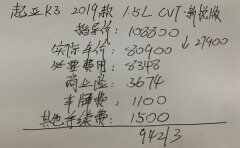 起亚K3 2019款 1.5L CVT 新锐版
指导价: 108800
实际车价: 80900 ↓27900
必要费用: 8348
商业险: 3674
车牌费: 1100
其他手续费: 1500
94213